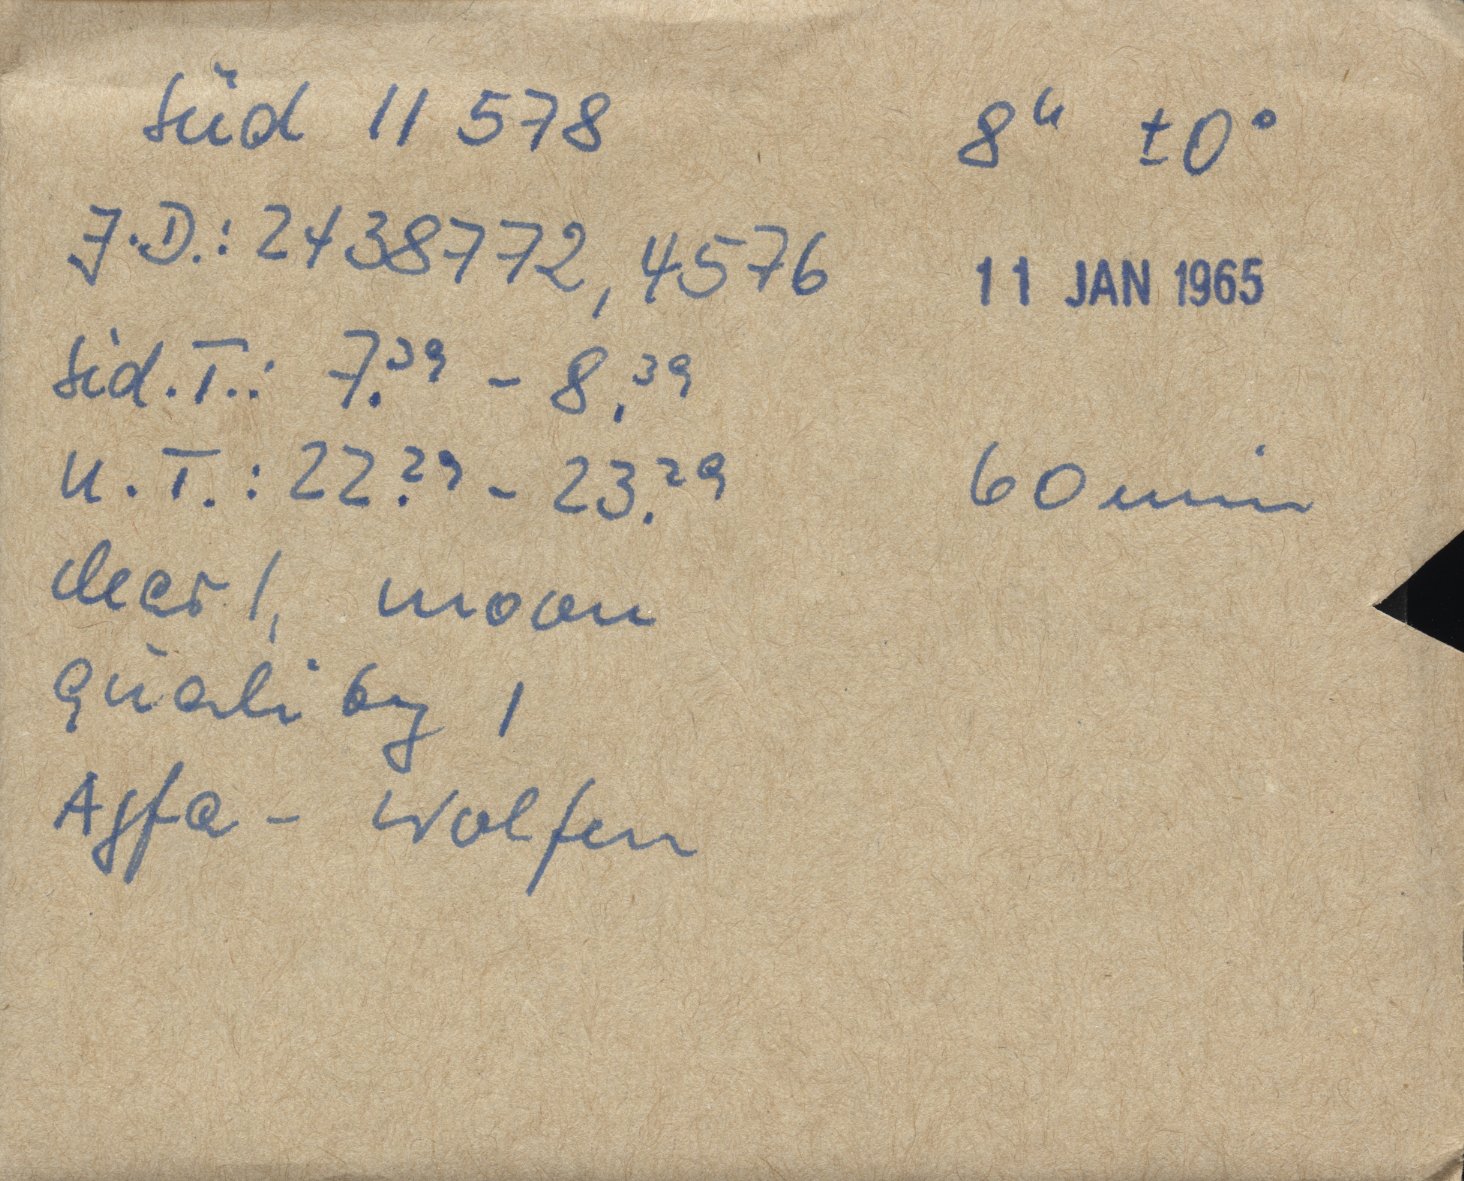 Süd 11 578 8ʰ ±0°
J.D.: 2438772,4576 11 JAN 1965
Sid.T.: 7.³⁹ - 8.³⁹
U.T.: 22.²⁹ - 23.²⁹ 60 min
clear 1, moon
quality 1
Agfa - Wolfen